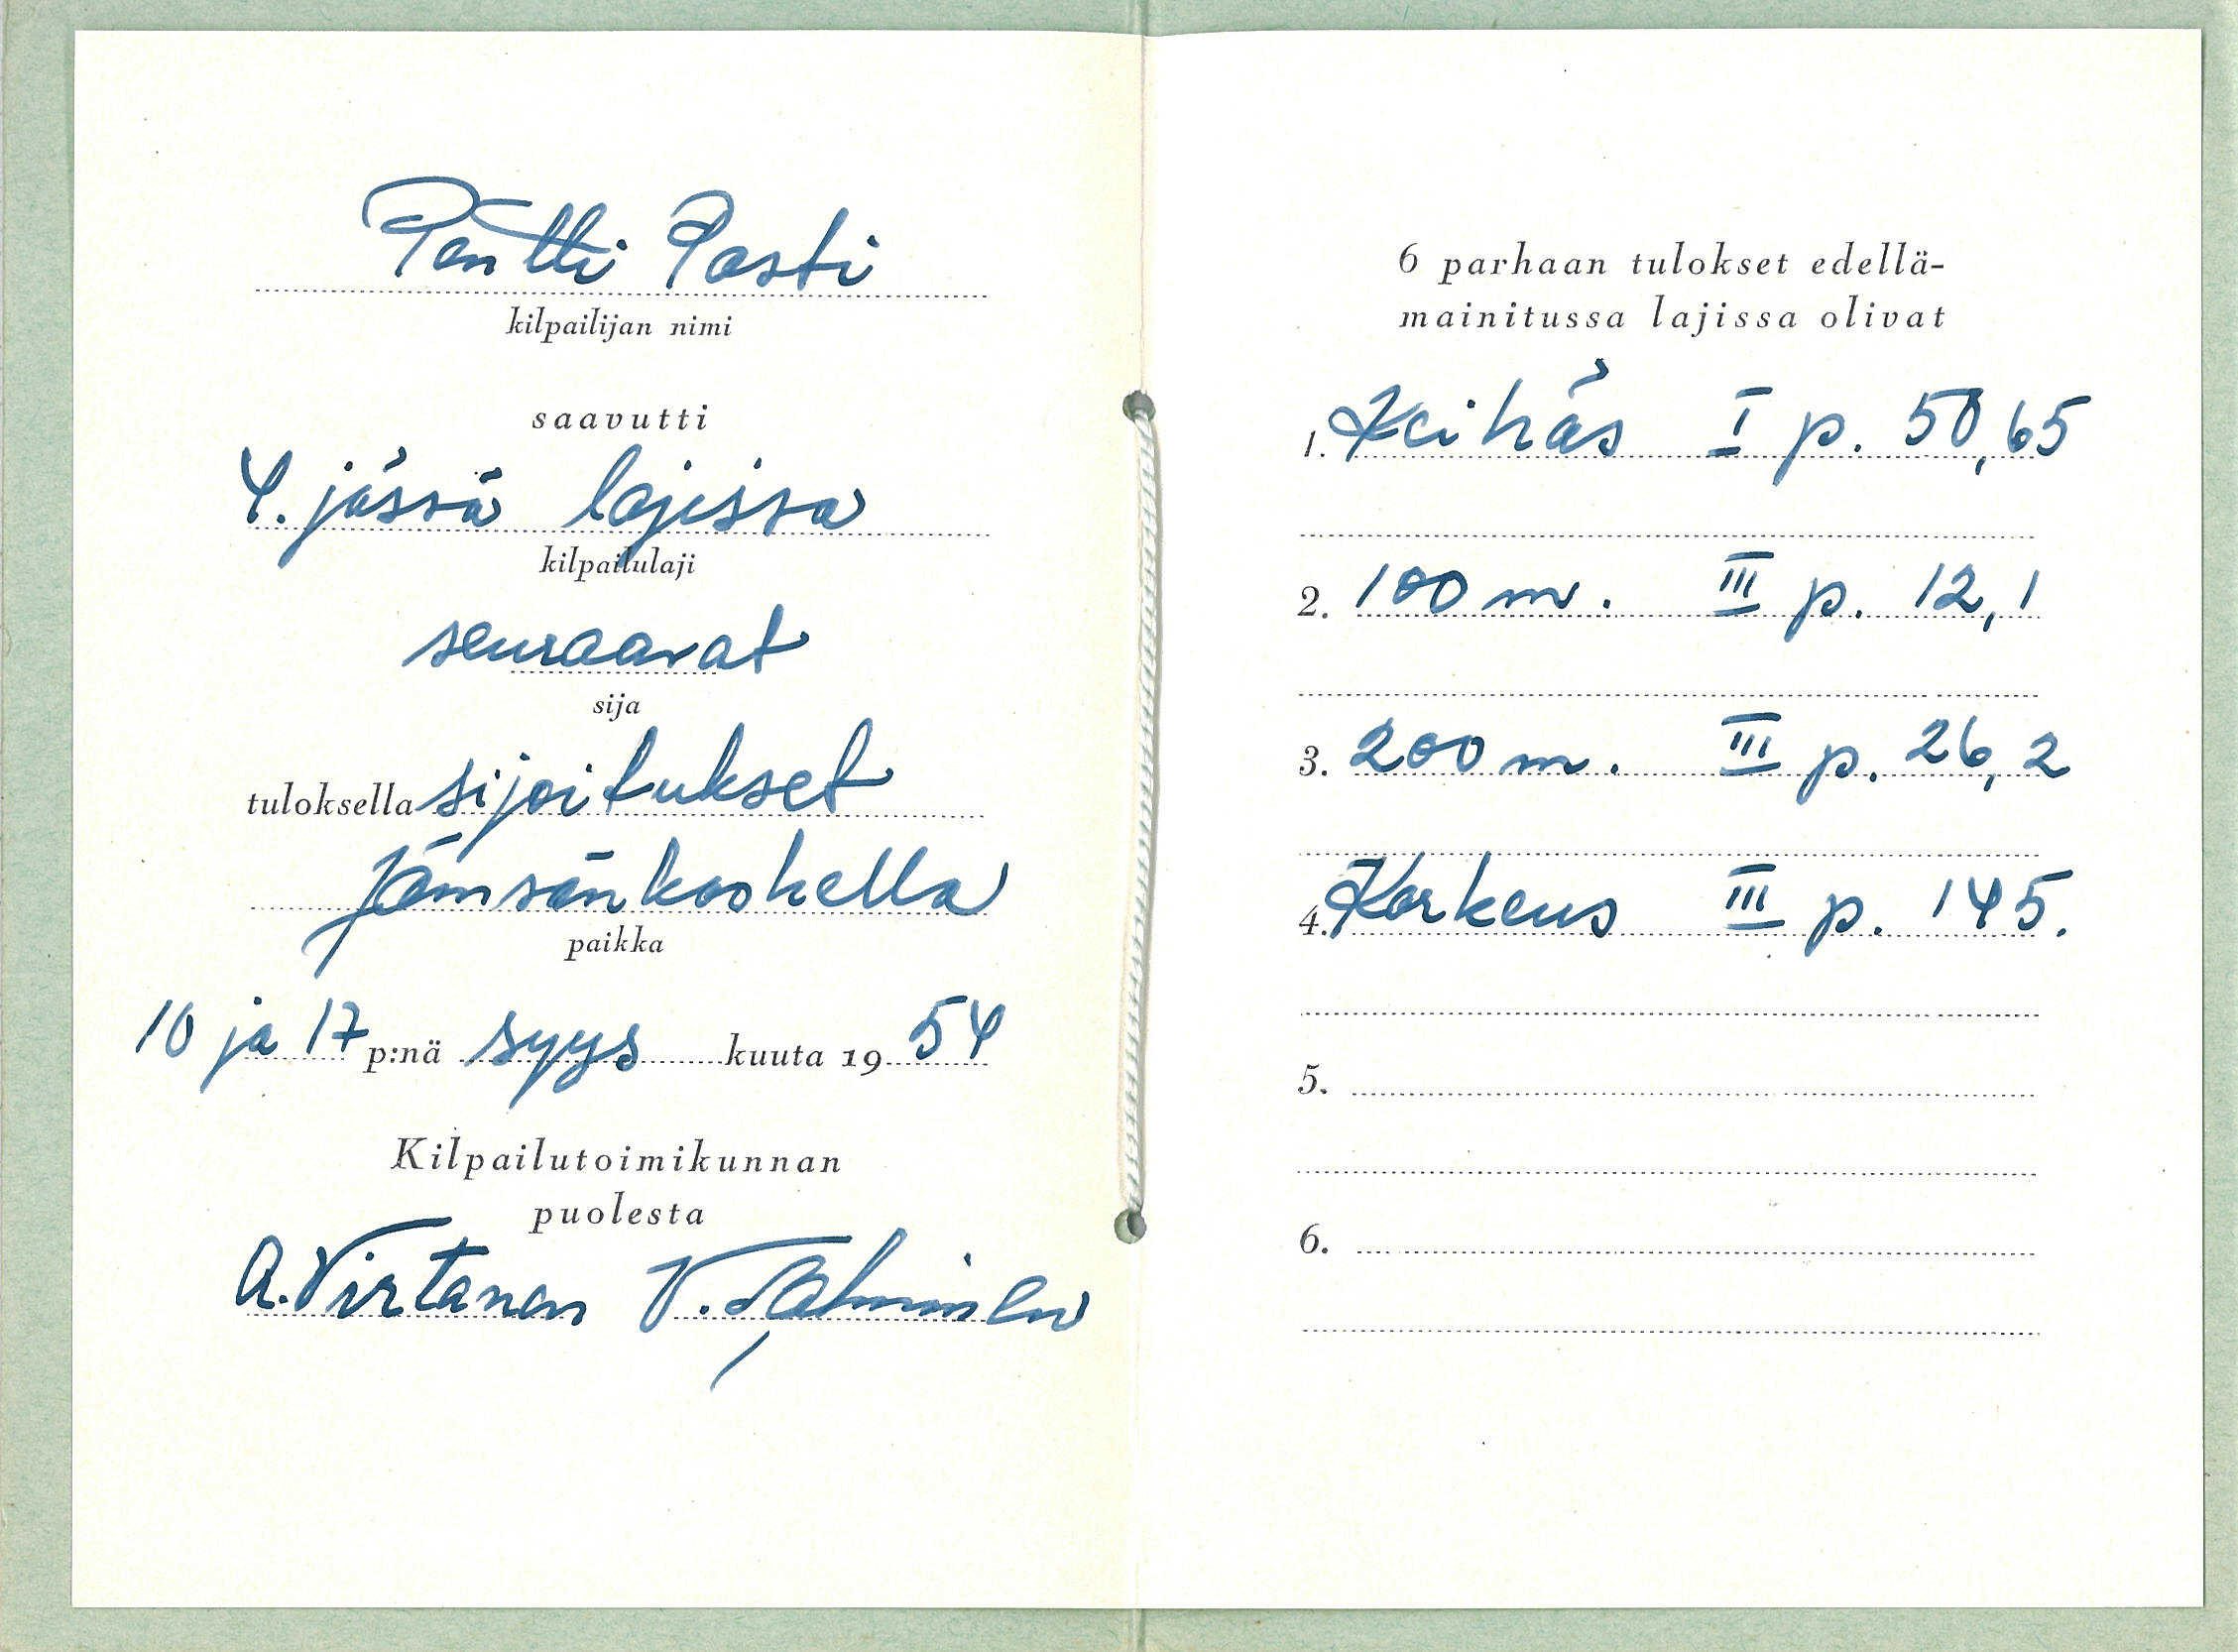 Pentti Pasti
kilpailijan nimi
saavutti
4. jässä lajissa
kilpailulaji
seuraavat
sija
tuloksella sijoitukset
Jämsänkoskella
paikka
10 ja 17 p:nä syys kuuta 19 54
Kilpailutoimikunnan
puolesta
A. Virtanen V.
6 parhaan tulokset edellä-
mainitussa lajissa olivat
1. Keihäs I p. 50,65
2. 100 m. III p. 12,1
3. 200 m. III p. 26,2
4. Korkeus III p. 145.
5.
6.